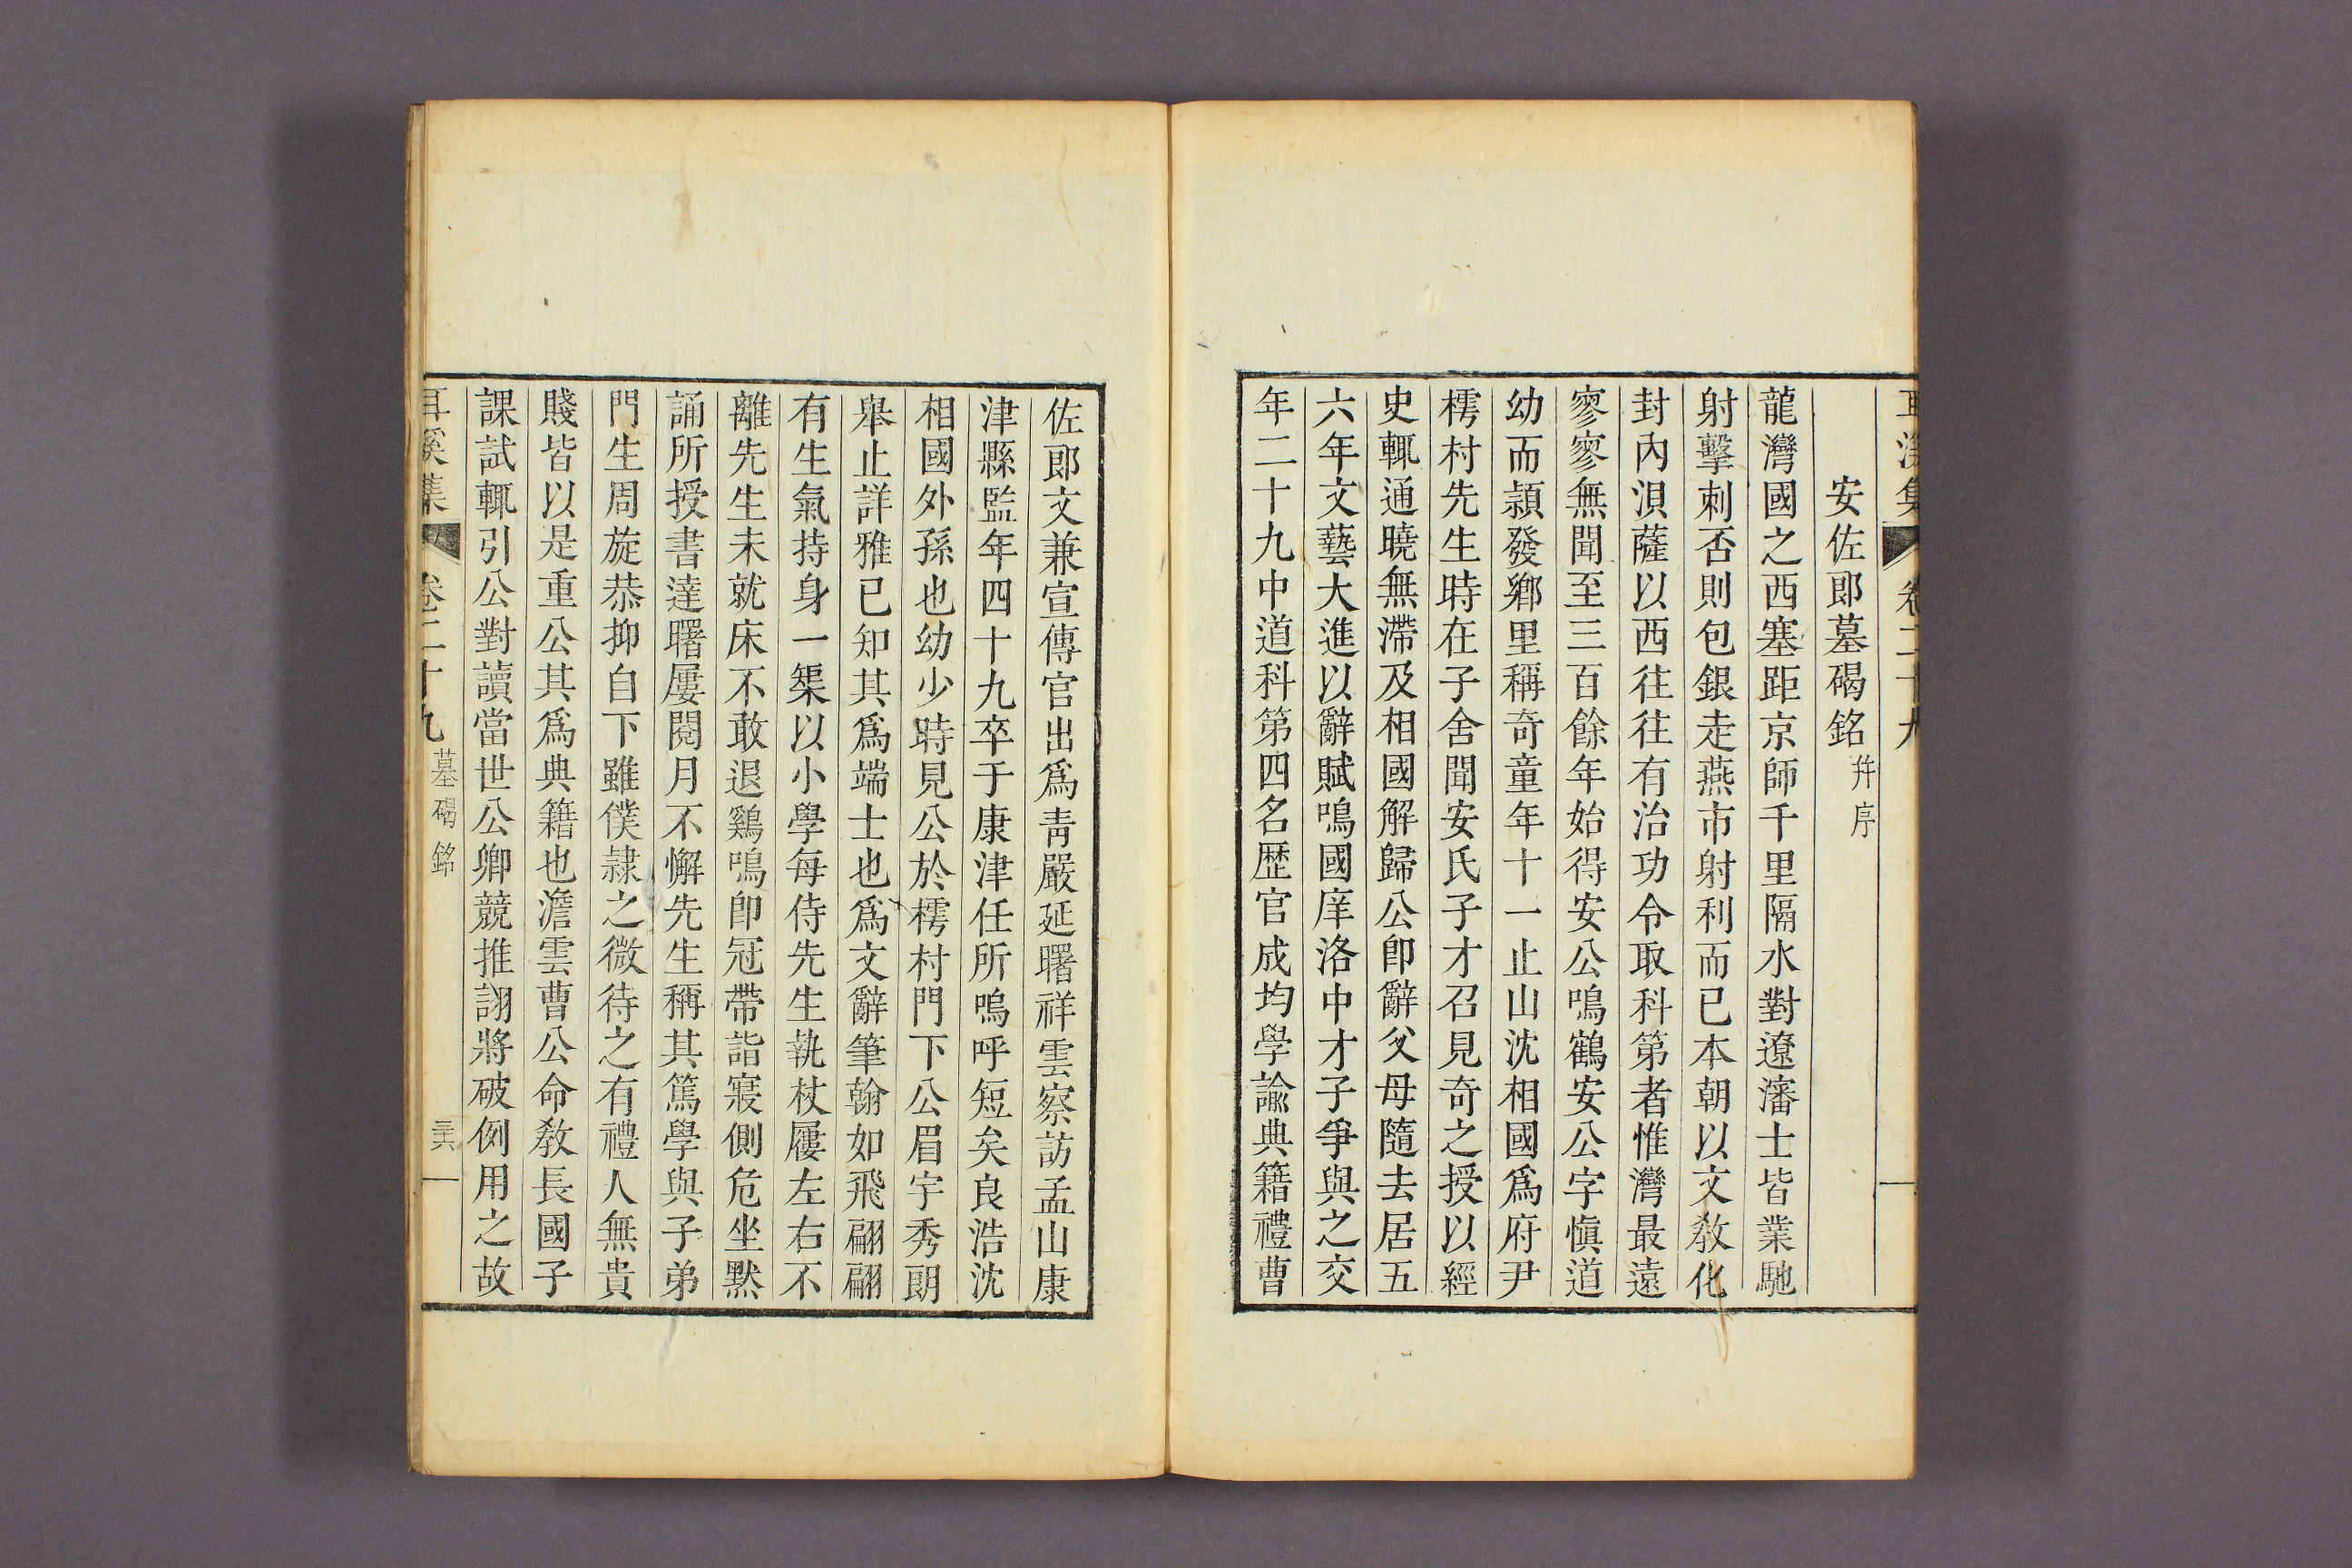 耳溪集 卷二十九
安佐郎墓碣銘 幷序
龍灣國之西塞距京師千里隔水對遼瀋士皆業馳
射擊刺否則包銀走燕市射利而已本朝以文教化
封內浿薩以西往往有治功令取科第者惟灣最遠
寥寥無聞至三百餘年始得安公鳴鶴安公字愼道
幼而潁發鄕里稱奇童年十一止山沈相國爲府尹
樗村先生時在子舍聞安氏子才召見奇之授以經
史輒通曉無滯及相國解歸公卽辭父母隨去居五
六年文藝大進以辭賦鳴國庠洛中才子爭與之交
年二十九中道科第四名歷官成均學諭典籍禮曹
佐郎文兼宣傳官出爲靑嚴延曙祥雲察訪孟山康
津縣監年四十九卒于康津任所嗚呼短矣良浩沈
相國外孫也幼少時見公於樗村門下公眉宇秀朗
舉止詳雅已知其爲端士也爲文辭筆翰如飛翩翩
有生氣持身一榘以小學每侍先生執杖屨左右不
離先生未就床不敢退鷄鳴卽冠帶詣寢側危坐默
誦所授書達曙屢閱月不懈先生稱其篤學與子弟
門生周旋恭抑自下雖僕隷之微待之有禮人無貴
賤皆以是重公其爲典籍也澹雲曹公命敎長國子
課試輒引公對讀當世公卿競推詡將破例用之故
耳溪集 卷二十九 墓碣銘 三六